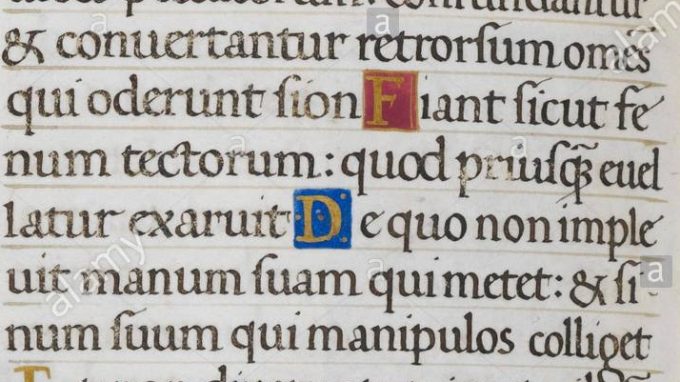 & conuertantur retrorſum omẽs
qui oderunt ſion Fiant ſicut fe
num tectorum: quod priuſꝗ̃ euel
latur exaruit De quo non imple
uit manum ſuam qui metet: & ſi
num ſuum qui manipulos colliget